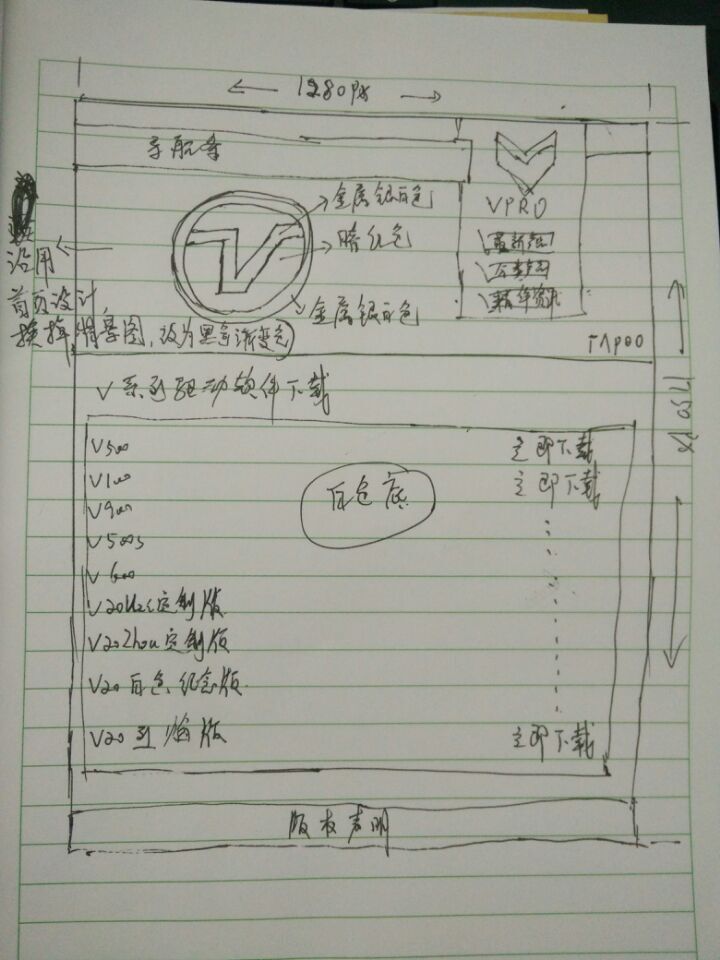 1280px
导航条
VPRO
金属银白色
暗红色
最新
沿用
首页设计,
金属银白色
换掉背景图,改为黑每渐变色
TAPOO
V系列驱动软件下载
V500 立即下载
V100 立即下载
V900
白色底
V500s
V600
V20U2定制版
V20Zhou定制版
V20白色纪念版
V20烈焰版 立即下载
版权声明